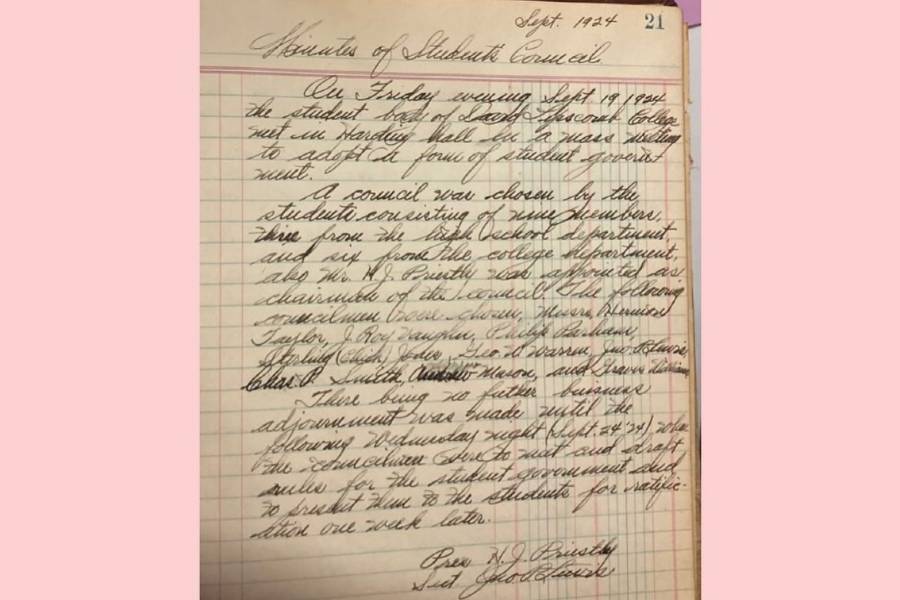 Sept. 1924 21
Minutes of Students Council
On Friday evening Sept. 19, 1924
the student body of David Lipscomb College
met in Harding Hall in a mass meeting
to adopt a form of student govern-
ment.
A council was chosen by the
students consisting of nine members,
three from the high school department,
and six from the college department,
also Mr. H. J. Priestly was appointed as
chairman of the council. The following
councilmen were chosen, Messrs. Hermon
Taylor, J. Roy Vaughn, Philip Parham
Sterling (Chick) Jones, Geo. W. Warren, Jno. P. Lewis
Chas. P. Smith, Andrew Mason, and Travis
There being no futher buisness
adjournment was made until the
following Wednesday night (Sept. 24 '24) when
the councilmen were to meet and draft
rules for the student government and
to present them to the students for ratific-
ation one week later.
Pres H. J. Priestly
Sect Jno. P. Lewis